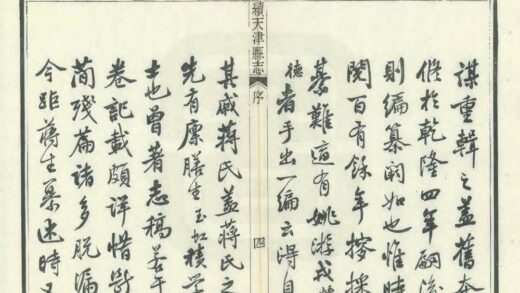 謀重輯之蓋舊本
脩於乾隆四年嗣後
則編纂闕如也惟時
閱百有餘年搜採
綦難適有姚游戎
德者手出一編云得自
續天津縣志
序
四
其戚蔣氏蓋蔣氏之
先有廩膳生玉虹積學
士也曾著志稿若干
卷記載頗詳惜斷
簡殘篇諸多脫漏
今距蔣生纂述時又